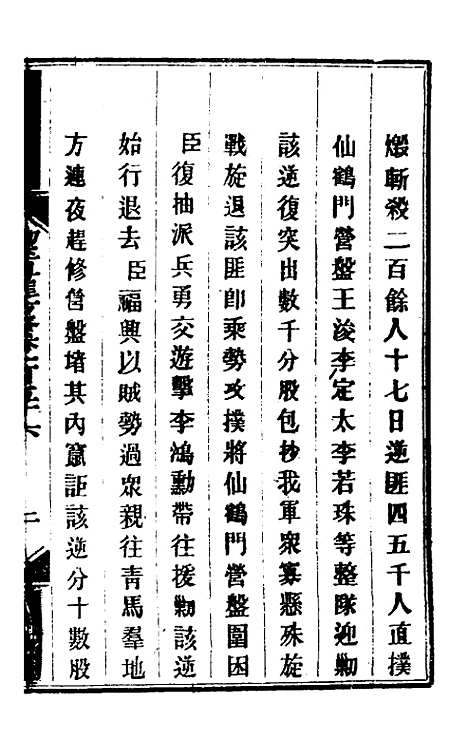 燬斬殺二百餘人十七日逆匪四五千人直撲
仙鶴門營盤王浚李定太李若珠等整隊迎勦
該逆復突出數千分股包抄我軍衆寡懸殊旋
戰旋退該匪卽乘勢攻撲將仙鶴門營盤圍困
臣復抽派兵勇交遊擊李鴻勳帶往援勦該逆
始行退去臣福興以賊勢過衆親往青馬羣地
方連夜趕修營盤堵其內竄詎該逆分十數股
二